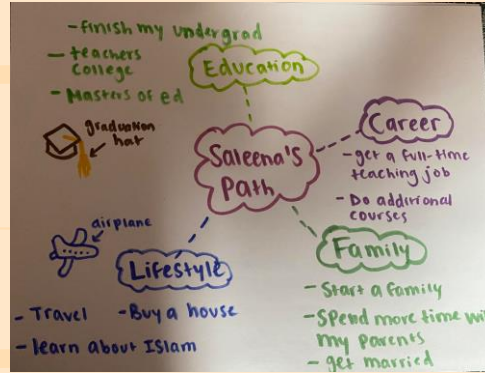 -finish my undergrad
- teachers
College
- Masters of ed
Education
graduation
hat
Saleena's
Path
Career
-get a full-time
teaching job
- Do additional
courses
airplane
Lifestyle
- Travel
-Buy a house
- learn about Islam
Family
- Start a family
-Spend more time
my parents
- get married